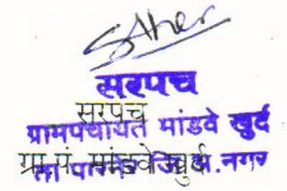 सरपंच
सरपंच
ग्रामपंचायत मांडवे खुर्द
ग्रा.पं. मांडवे खुर्द
ता पारनेर जि.अ.नगर